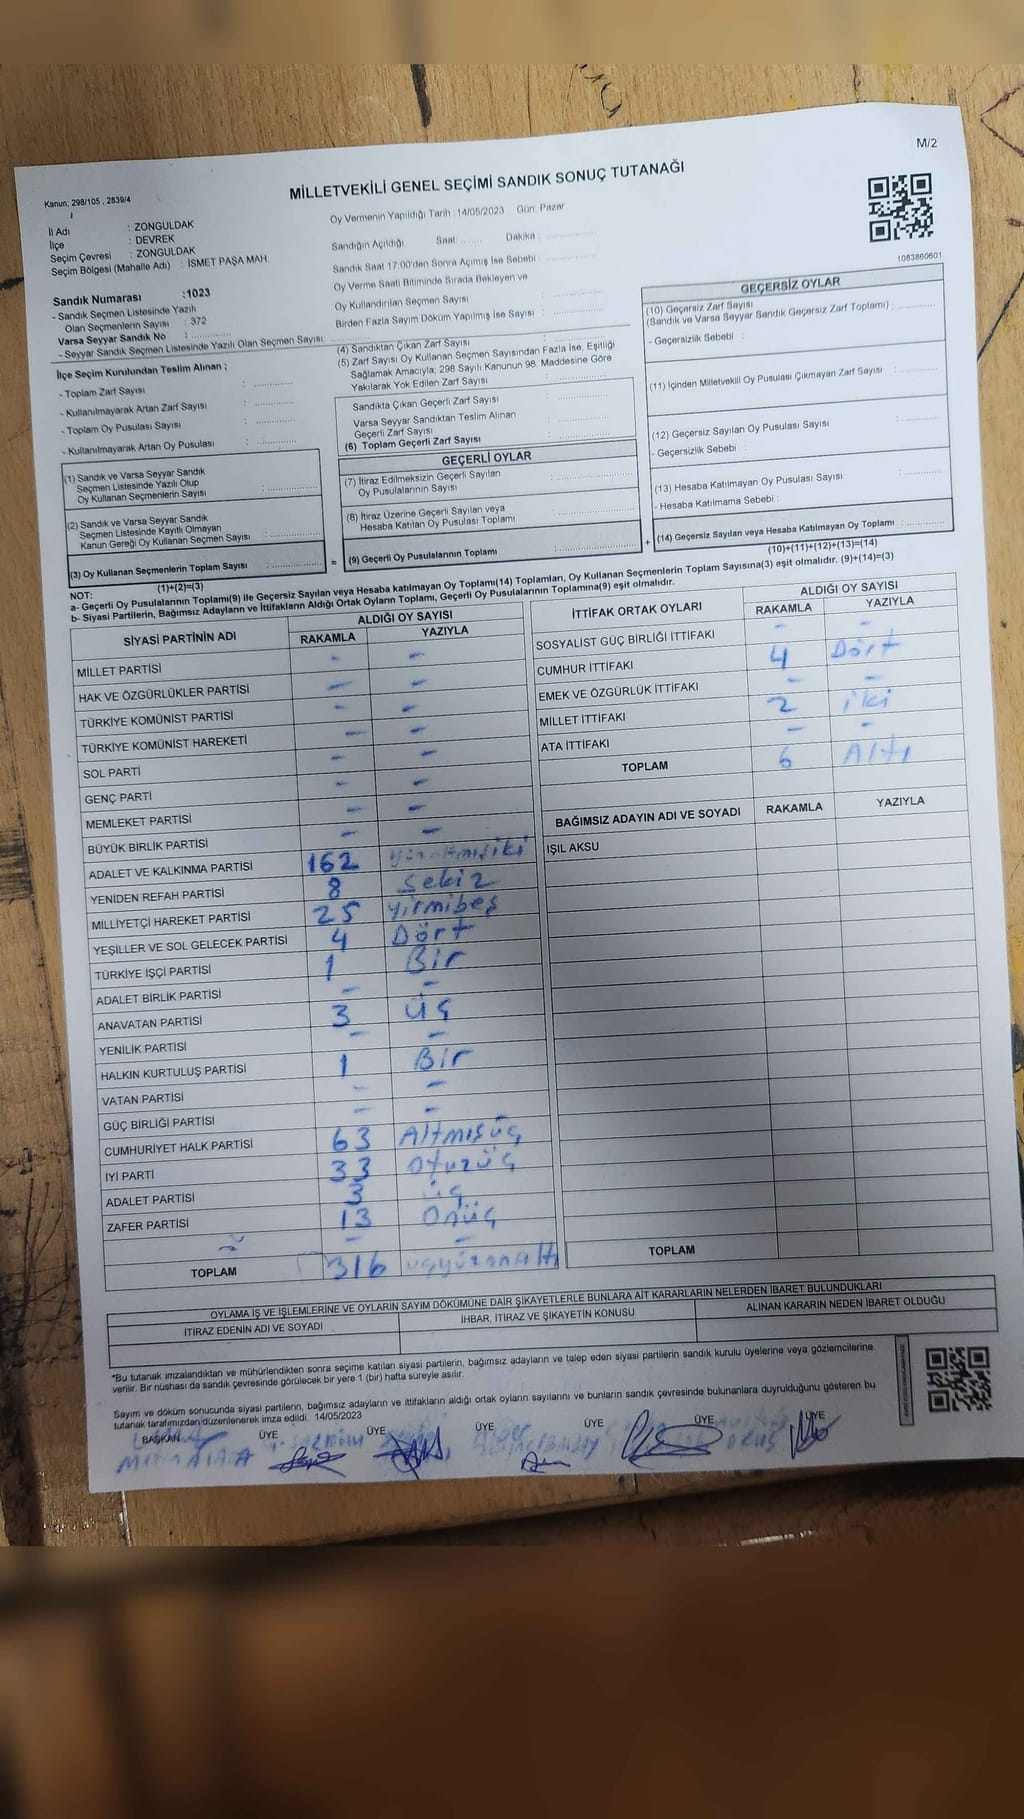 M/2
MİLLETVEKİLİ GENEL SEÇİMİ SANDIK SONUÇ TUTANAĞI
Kanun: 298/105 , 2839/4
İl Adı : ZONGULDAK
İlçe : DEVREK
Seçim Çevresi : ZONGULDAK
Seçim Bölgesi (Mahalle Adı) : İSMET PAŞA MAH.
Oy Vermenin Yapıldığı Tarih :14/05/2023 Gün: Pazar
Sandığın Açıldığı Saat: ........ Dakika : ..............
Sandık Saat 17:00'den Sonra Açımış İse Sebebi : ..............
Oy Verme Saati Bitiminde Sırada Bekleyen ve
Oy Kullandırılan Seçmen Sayısı : ..............
Birden Fazla Sayım Döküm Yapılmış İse Sayısı : ..............
1063860601
Sandık Numarası :1023
- Sandık Seçmen Listesinde Yazılı
Olan Seçmenlerin Sayısı : 372
Varsa Seyyar Sandık No : ..............
- Seyyar Sandık Seçmen Listesinde Yazılı Olan Seçmen Sayısı : ..............
İlçe Seçim Kurulundan Teslim Alınan ;
- Toplam Zarf Sayısı : ..............
- Kullanılmayarak Artan Zarf Sayısı : ..............
- Toplam Oy Pusulası Sayısı : ..............
- Kullanılmayarak Artan Oy Pusulası : ..............
(1) Sandık ve Varsa Seyyar Sandık
Seçmen Listesinde Yazılı Olup
Oy Kullanan Seçmenlerin Sayısı : ..............
(2) Sandık ve Varsa Seyyar Sandık
Seçmen Listesinde Kayıtlı Olmayan
Kanun Gereği Oy Kullanan Seçmen Sayısı : ..............
(3) Oy Kullanan Seçmenlerin Toplam Sayısı : ..............
(1)+(2)=(3)
(4) Sandıktan Çıkan Zarf Sayısı : ..............
(5) Zarf Sayısı Oy Kullanan Seçmen Sayısından Fazla İse, Eşitliği
Sağlamak Amacıyla; 298 Sayılı Kanunun 98. Maddesine Göre
Yakılarak Yok Edilen Zarf Sayısı : ..............
Sandıkta Çıkan Geçerli Zarf Sayısı : ..............
Varsa Seyyar Sandıktan Teslim Alınan
Geçerli Zarf Sayısı : ..............
(6) Toplam Geçerli Zarf Sayısı : ..............
GEÇERLİ OYLAR
(7) İtiraz Edilmeksizin Geçerli Sayılan
Oy Pusulalarının Sayısı : ..............
(8) İtiraz Üzerine Geçerli Sayılan veya
Hesaba Katılan Oy Pusulası Toplamı : ..............
= (9) Geçerli Oy Pusulalarının Toplamı : ..............
GEÇERSİZ OYLAR
(10) Geçersiz Zarf Sayısı
(Sandık ve Varsa Seyyar Sandık Geçersiz Zarf Toplamı) : ..............
- Geçersizlik Sebebi :
(11) İçinden Milletvekili Oy Pusulası Çıkmayan Zarf Sayısı : ..............
(12) Geçersiz Sayılan Oy Pusulası Sayısı : ..............
- Geçersizlik Sebebi :
(13) Hesaba Katılmayan Oy Pusulası Sayısı : ..............
- Hesaba Katılmama Sebebi :
+ (14) Geçersiz Sayılan veya Hesaba Katılmayan Oy Toplamı : ..............
(10)+(11)+(12)+(13)=(14)
NOT:
a- Geçerli Oy Pusulalarının Toplamı(9) ile Geçersiz Sayılan veya Hesaba katılmayan Oy Toplamı(14) Toplamları, Oy Kullanan Seçmenlerin Toplam Sayısına(3) eşit olmalıdır. (9)+(14)=(3)
b- Siyasi Partilerin, Bağımsız Adayların ve İttifakların Aldığı Ortak Oyların Toplamı, Geçerli Oy Pusulalarının Toplamına(9) eşit olmalıdır.
SİYASİ PARTİNİN ADI ALDIĞI OY SAYISI
RAKAMLA YAZIYLA
MİLLET PARTİSİ - -
HAK VE ÖZGÜRLÜKLER PARTİSİ - -
TÜRKİYE KOMÜNİST PARTİSİ - -
TÜRKİYE KOMÜNİST HAREKETİ - -
SOL PARTİ - -
GENÇ PARTİ - -
MEMLEKET PARTİSİ - -
BÜYÜK BİRLİK PARTİSİ - -
ADALET VE KALKINMA PARTİSİ 162
YENİDEN REFAH PARTİSİ 8 Sekiz
MİLLİYETÇİ HAREKET PARTİSİ 25 Yirmibeş
YEŞİLLER VE SOL GELECEK PARTİSİ 4 Dört
TÜRKİYE İŞÇİ PARTİSİ 1 Bir
ADALET BİRLİK PARTİSİ - -
ANAVATAN PARTİSİ 3 Üç
YENİLİK PARTİSİ - -
HALKIN KURTULUŞ PARTİSİ 1 Bir
VATAN PARTİSİ - -
GÜÇ BİRLİĞİ PARTİSİ - -
CUMHURİYET HALK PARTİSİ 63 Altmışüç
İYİ PARTİ 33 Otuzüç
ADALET PARTİSİ 3 Üç
ZAFER PARTİSİ 13 Onüç
- -
TOPLAM 316 üçyüzonaltı
İTTİFAK ORTAK OYLARI ALDIĞI OY SAYISI
RAKAMLA YAZIYLA
SOSYALİST GÜÇ BİRLİĞİ İTTİFAKI - -
CUMHUR İTTİFAKI 4 Dört
EMEK VE ÖZGÜRLÜK İTTİFAKI - -
MİLLET İTTİFAKI 2 iki
ATA İTTİFAKI - -
TOPLAM 6 Altı
BAĞIMSIZ ADAYIN ADI VE SOYADI RAKAMLA YAZIYLA
IŞIL AKSU
TOPLAM
OYLAMA İŞ VE İŞLEMLERİNE VE OYLARIN SAYIM DÖKÜMÜNE DAİR ŞİKAYETLERLE BUNLARA AİT KARARLARIN NELERDEN İBARET BULUNDUKLARI
İTİRAZ EDENİN ADI VE SOYADI İHBAR, İTİRAZ VE ŞİKAYETİN KONUSU ALINAN KARARIN NEDEN İBARET OLDUĞU
*Bu tutanak imzalandıktan ve mühürlendikten sonra seçime katılan siyasi partilerin, bağımsız adayların ve talep eden siyasi partilerin sandık kurulu üyelerine veya gözlemcilerine
verilir. Bir nüshası da sandık çevresinde görülecek bir yere 1 (bir) hafta süreyle asılır.
Sayım ve döküm sonucunda siyasi partilerin, bağımsız adayların ve ittifakların aldığı ortak oyların sayılarını ve bunların sandık çevresinde bulunanlara duyrulduğunu gösteren bu
tutanak tarafımızdan düzenlenerek imza edildi. 14/05/2023
BAŞKAN ÜYE ÜYE ÜYE ÜYE ÜYE ÜYE